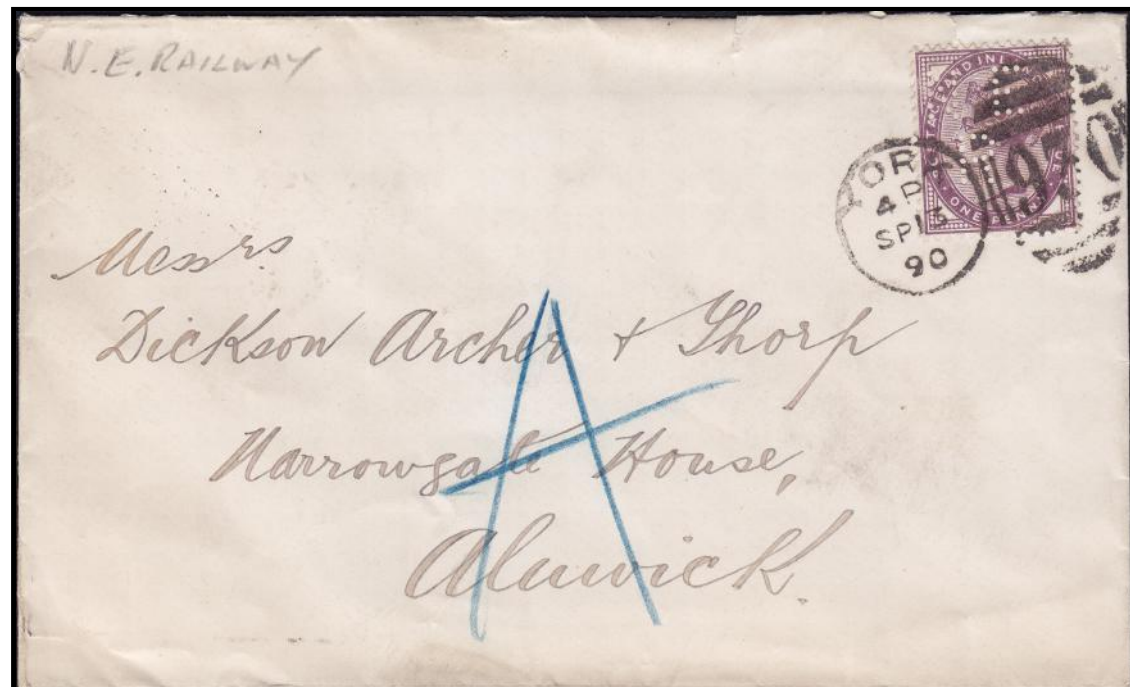 N. E. RAILWAY
POSTAGE AND INLAND REVENUE
ONE PENNY
YORK
4 P
SP 13
90
930
A
Messrs
Dickson Archer + Thorp
Narrowgate House,
Alnwick.